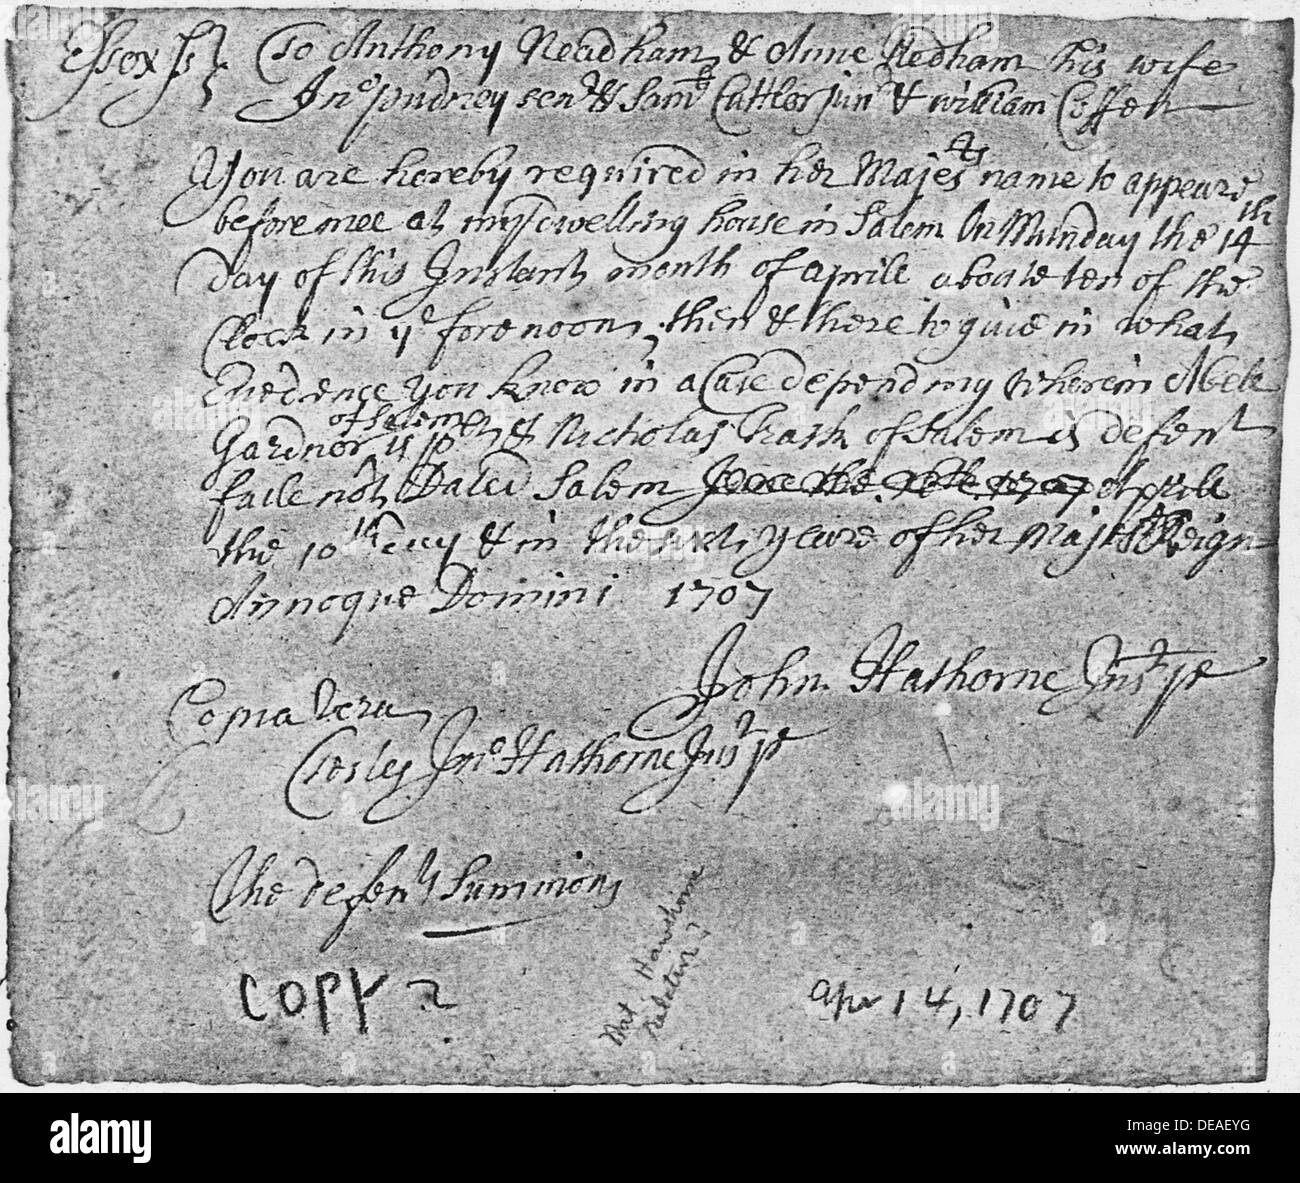 Essex ss To Anthony Needham & Anne Nedham his wife
Jno pudney senr & Samll Cuttler junr & william Coffen
You are hereby required in her Majesties name to appeare
before mee at my dwelling house in Salem On Munday the 14th
Day of this Instant month of aprill aboute ten of the
Clock in ye forenoon, then & there to give in what
Evedence you know in a Case depending wherein Abell
of Salem
Gardner is & Nicholas Trask of Salem is defent
faile not Dated Salem Aprill
the 10th day & in the year of her Majestes Reign
Annoque Domini 1707
John Hathorne Just pe
Copia Vera
Jno Hathorne Just pe
The defents Summons
Copy ?
Nat Hawthorne
relative?
apr 14, 1707
alamy
www.alamy.com
Image ID: DEAEYG